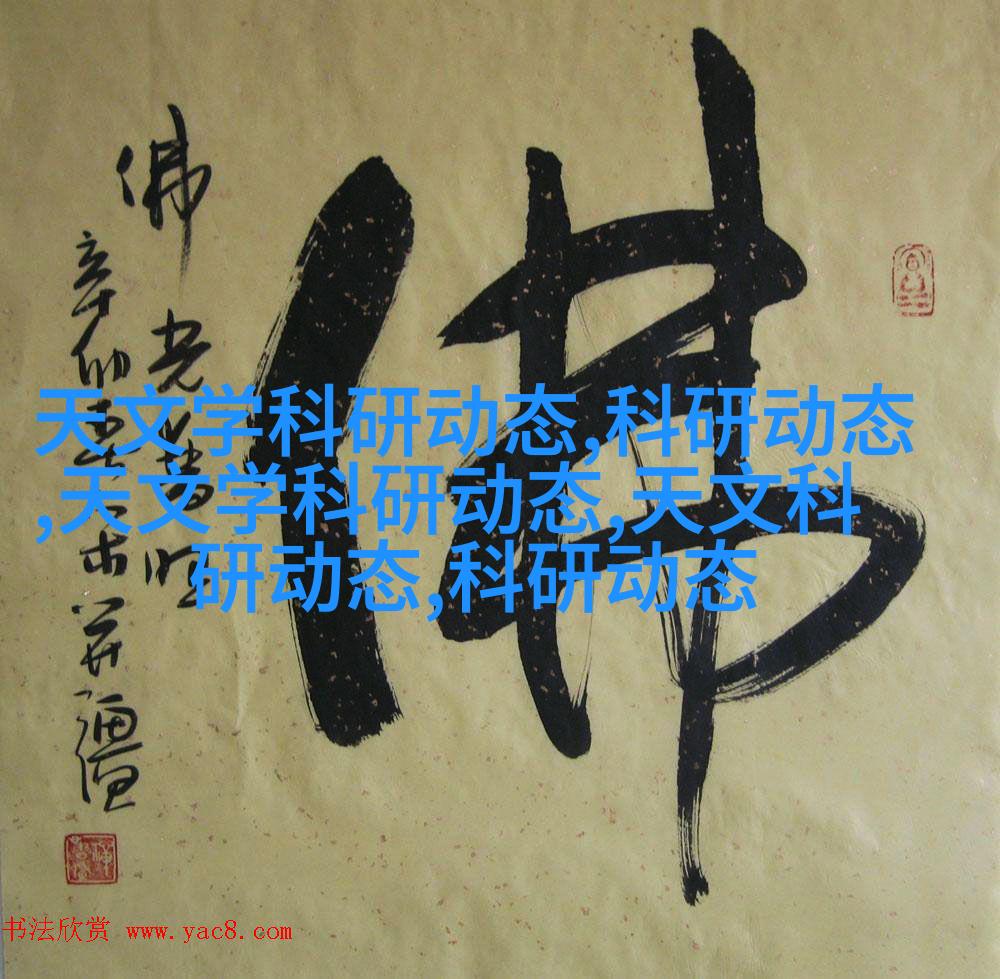 佛
佛光普照
辛卯
天文学科研动态,科研动态
,天文学科研动态,天文科
研动态,科研动态
书法欣赏 www.yac8.com